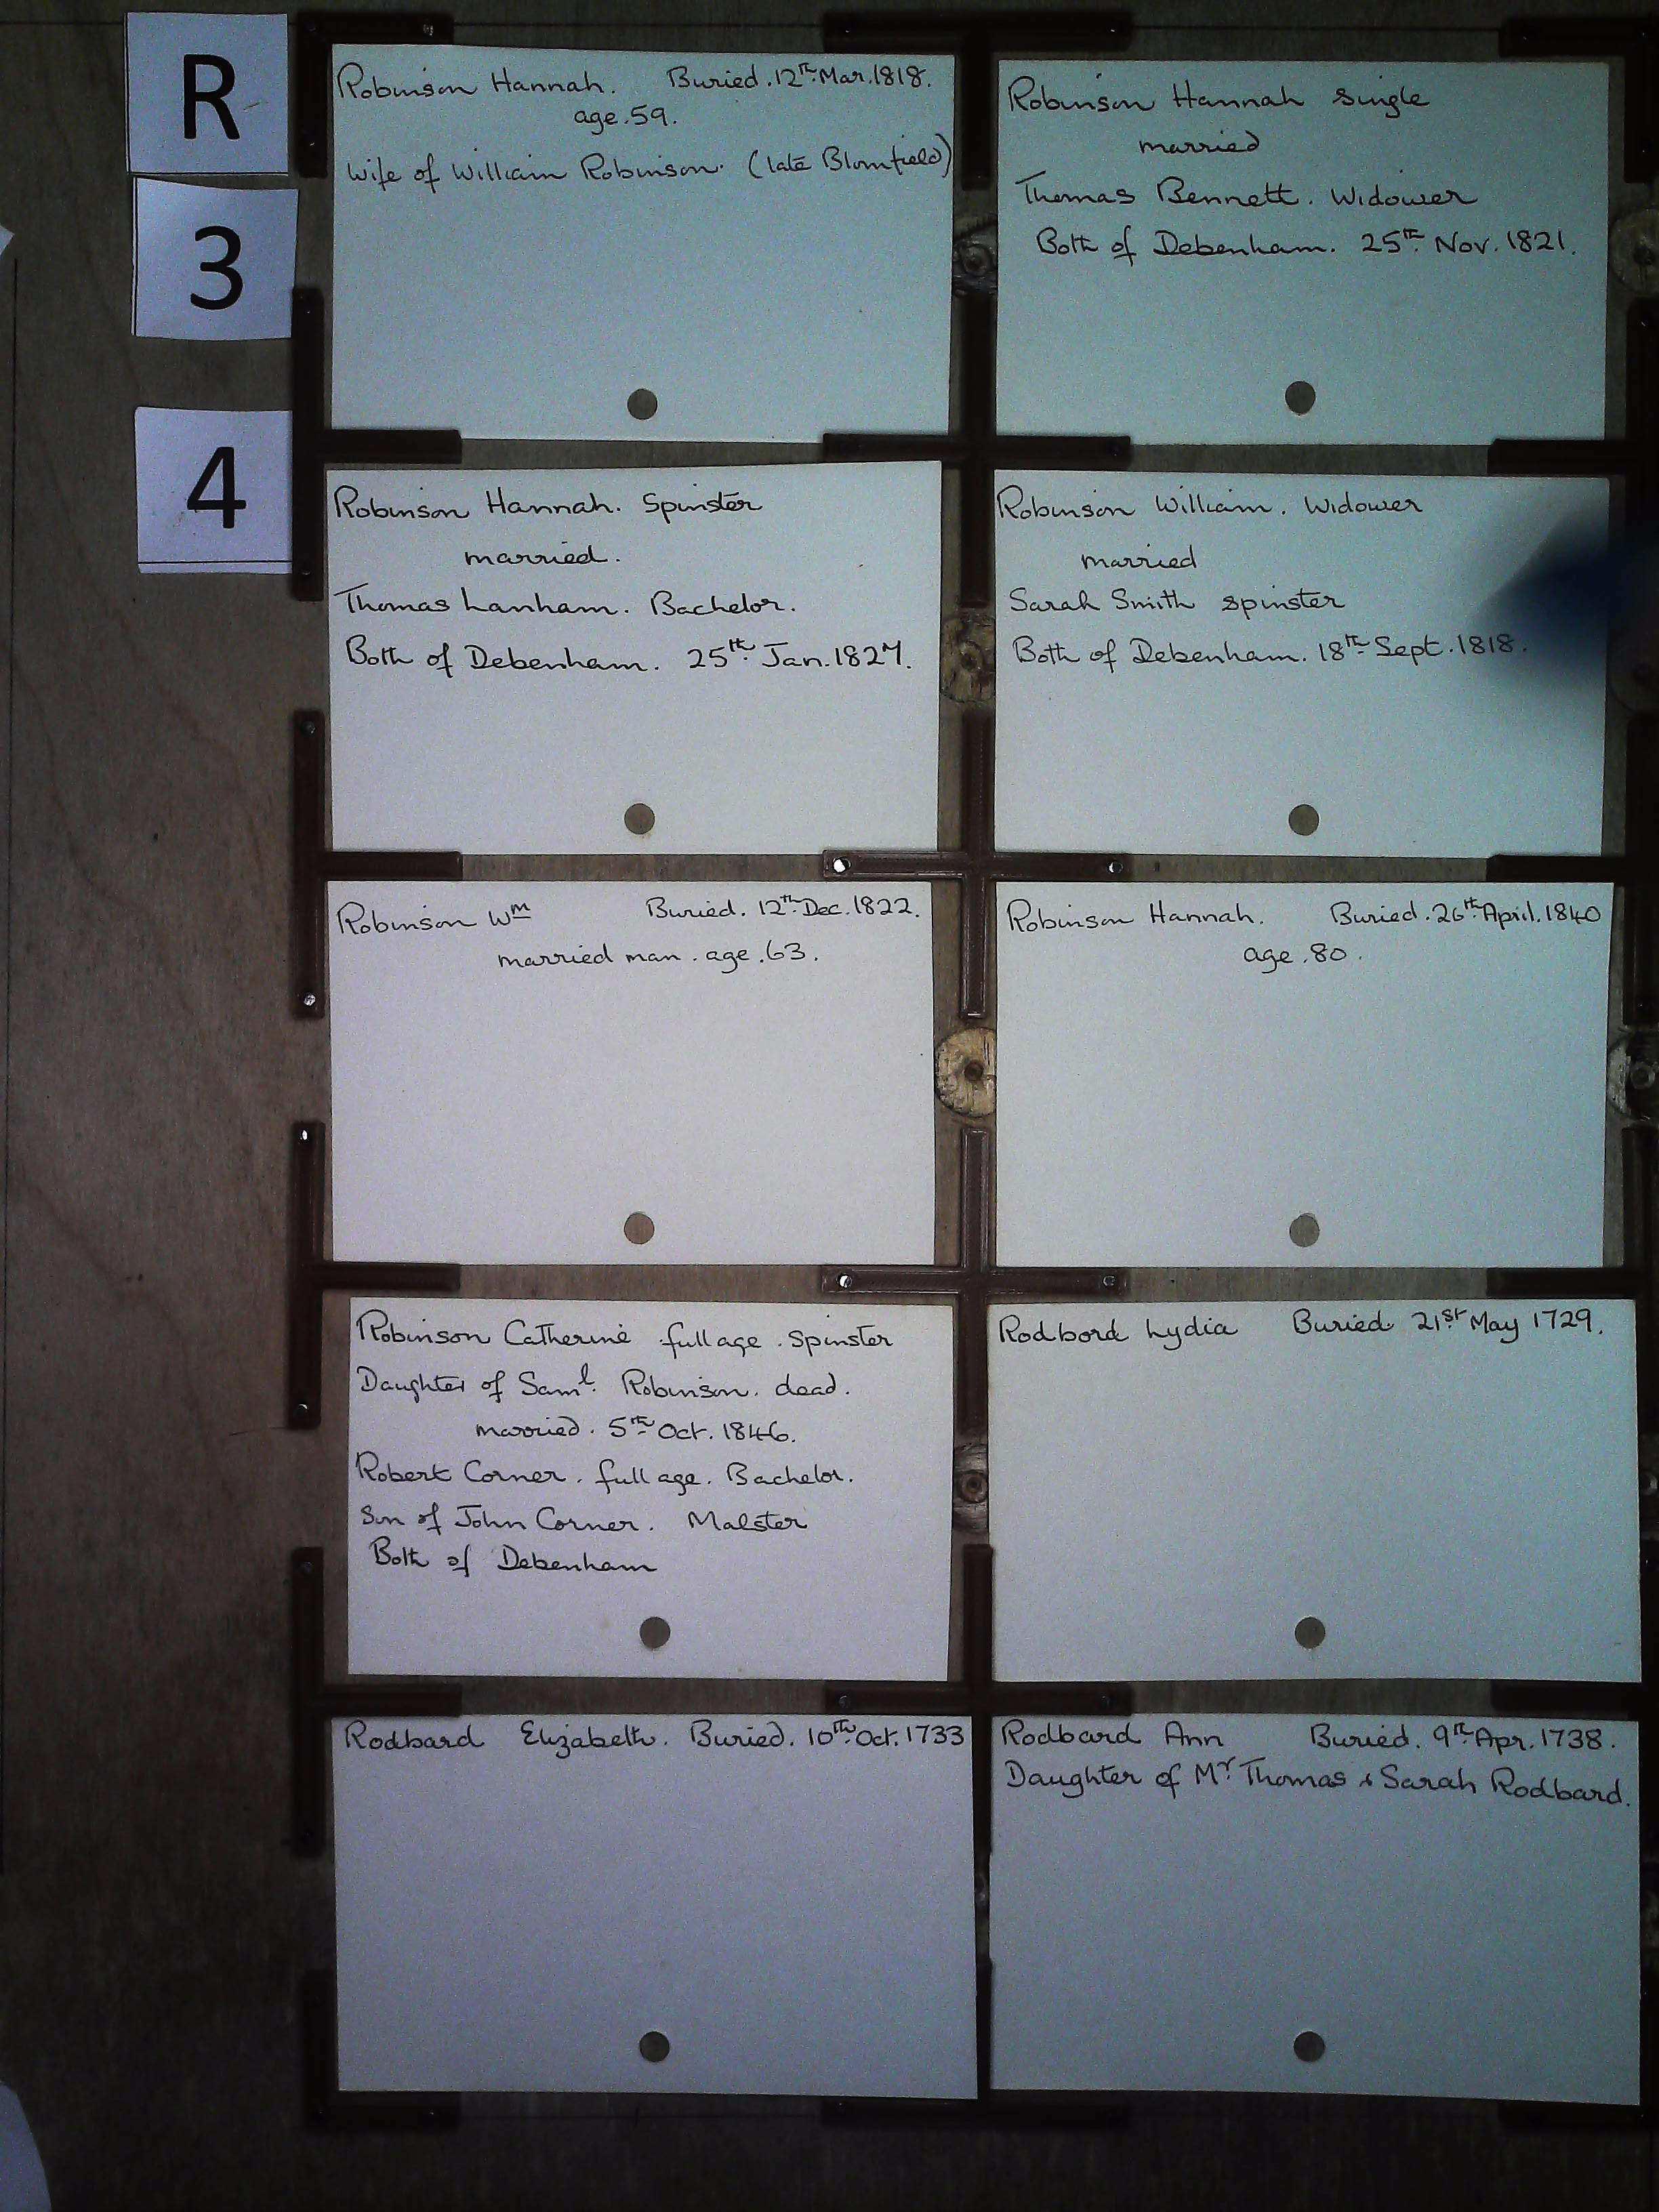 R
3
4
Robinson Hannah. Buried. 12th Mar. 1818.
age. 59.
Wife of William Robinson. (late Blomfield)
Robinson Hannah single
married
Thomas Bennett. Widower
Both of Debenham. 25th Nov. 1821.
Robinson Hannah. Spinster
married.
Thomas Lanham. Bachelor.
Both of Debenham. 25th Jan. 1827.
Robinson William. Widower
married
Sarah Smith spinster
Both of Debenham. 18th Sept. 1818.
Robinson Wm Buried. 12th Dec. 1822.
married man. age. 63.
Robinson Hannah. Buried. 26th April. 1840
age. 80.
Robinson Catherine full age. Spinster
Daughter of Saml. Robinson. dead.
married. 5th Oct. 1846.
Robert Corner. full age. Bachelor.
Son of John Corner. Malster
Both of Debenham
Rodbord Lydia Buried 21st May 1729.
Rodbard Elizabeth. Buried. 10th Oct. 1733
Rodbard Ann Buried. 9th Apr. 1738.
Daughter of Mr Thomas & Sarah Rodbard.